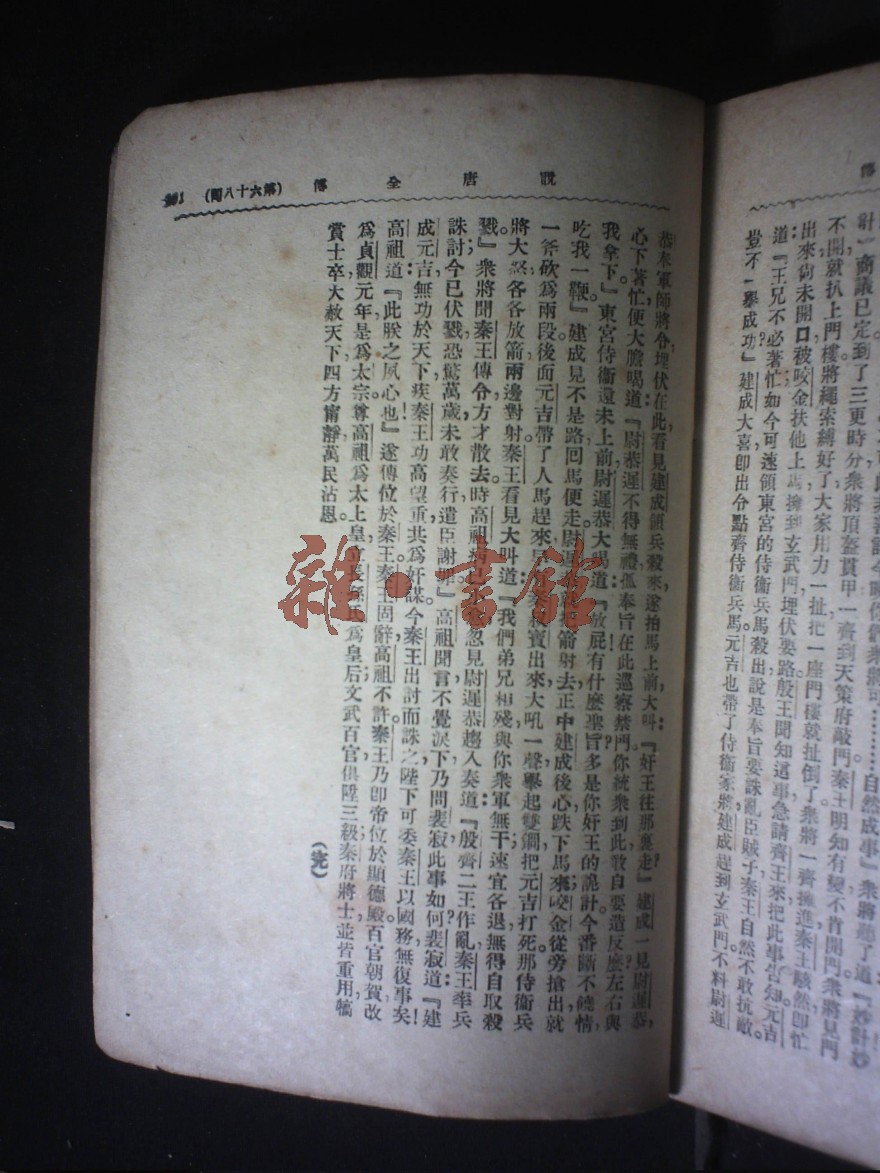 計』商議已定到了三更時分衆將頂盔貫甲一齊到天策府敲門秦王明知有變不肯開門衆將見門
不開就扒上門樓將繩索縛好了大家用力一扯把一座門樓就扯倒了衆將一齊擁進秦王駭然卽忙
出來尙未開口被咬金扶他上馬擁到玄武門埋伏要路殷王聞知這事急請齊王來把此事告知元吉
道『王兄不必著忙如今可速領東宮的侍衛兵馬殺出說是奉旨要誅亂臣賊子秦王自然不敢抗敵
豈不一舉成功』建成大喜卽出令點齊侍衛兵馬元吉也帶了侍衛家將建成趕到玄武門不料尉遲
說唐全傳 (第六十八回)
恭奉軍師將令埋伏在此看見建成領兵殺來遂拍馬上前大叫『奸王往那裏走』建成一見尉遲恭
心下著忙便大膽喝道『尉恭遲不得無禮孤奉旨在此巡察禁門你統衆到此敢自要造反麽左右與
我拿下』東宮侍衛還未上前尉遲恭大喝道『放屁有什麽聖旨多是你奸王的詭計今番斷不饒情
吃我一鞭』建成見不是路回馬便走尉遲箭射去正中建成後心跌下馬來咬金從旁搶出就
一斧砍爲兩段後面元吉帶了人馬趕來出來大吼一聲舉起雙鐧把元吉打死那侍衛兵
將大怒各各放箭兩邊對射秦王看見大叫道『我們弟兄相殘與你衆軍無干速宜各退無得自取殺
戮』衆將聞秦王傳令方才散去時高祖病忽見尉遲恭趨入奏道『殷齊二王作亂秦王率兵
誅討今已伏戮恐驚萬歲未敢奏行遣臣謝罪』高祖聞言不覺淚下乃問裴寂此事如何裴寂道『建
成元吉無功於天下疾秦王功高望重共爲奸謀今秦王出討而誅之陛下可委秦王以國務無復事矣
高祖道『此朕之夙心也』遂傳位於秦王秦王固辭高祖不許秦王乃卽帝位於顯德殿百官朝賀改
爲貞觀元年是爲太宗尊高祖爲太上皇立長孫氏爲皇后文武百官俱陞三級秦府將士並皆重用犒
賞士卒大赦天下四方甯靜萬民沾恩
(完)
雜·書館